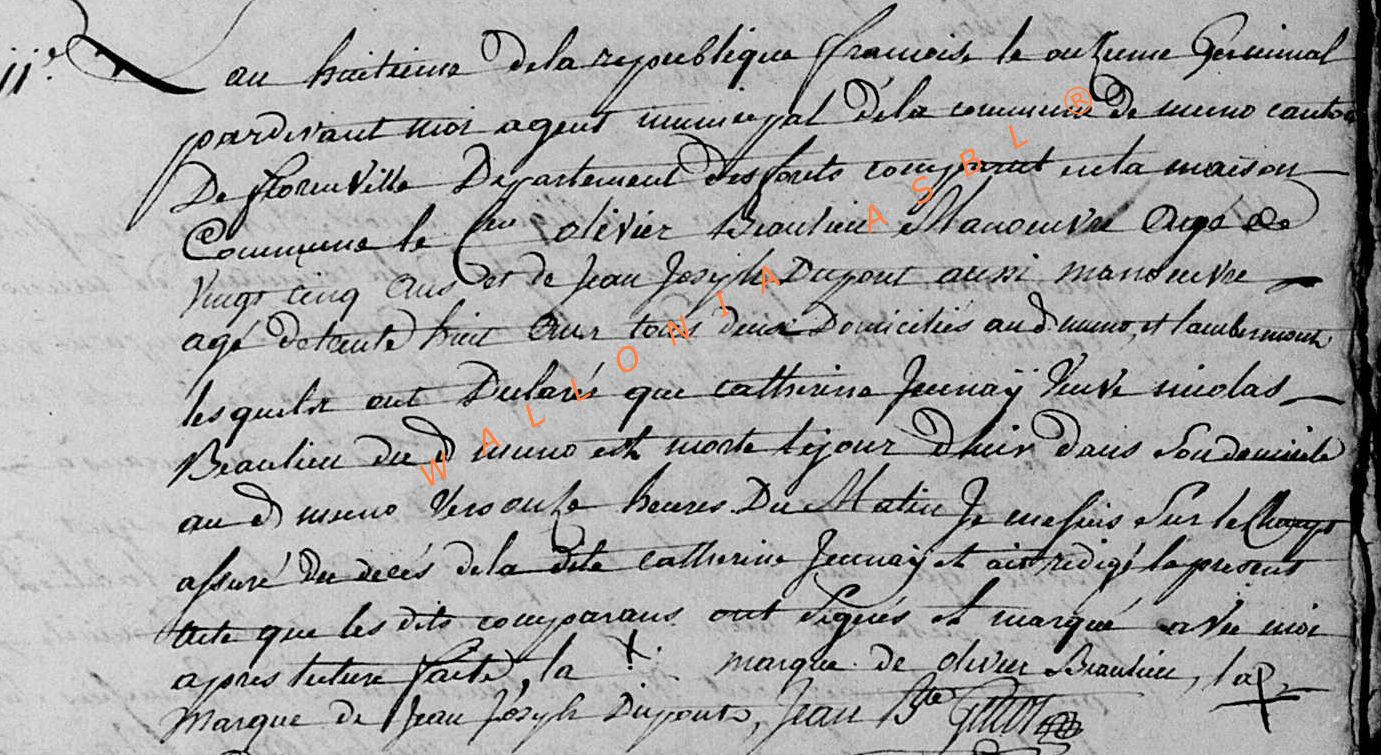 11e. au huitieme de la republique francoise le onzieme Germinal
pardevant moi agent municipal de la commune de muno canton
De florenville Departement des forets comparut en la maison
Commune le Cen olivier Beaulieu Manoeuvre Age de
Vingt cinq Ans et de Jean Joseph Dupont aussi manoeuvre
agé de trente huit Ans tous deux Domiciliés au d muno, et lambermont
lesquels ont Declarés que catherine Jeunaÿ Veuve nicolas
Beaulieu du d muno est morte le jour d'huir dans son domicile
au d muno Vers onze heures Du Matin Je me suis Sur le Champ
assuré du decés de la dite catherine Jeunaÿ et ait redigé le present
acte que les dits comparans ont signés et marqué avec moi
apres lecture faite, la marque de olivier Beaulieu, la
marque de Jean Joseph Dupont, Jean Bte
WALLONIA ASBL ®